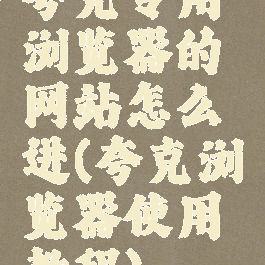 夸克专用
浏览器的
网站怎么
进(夸克浏
览器使用
教程)